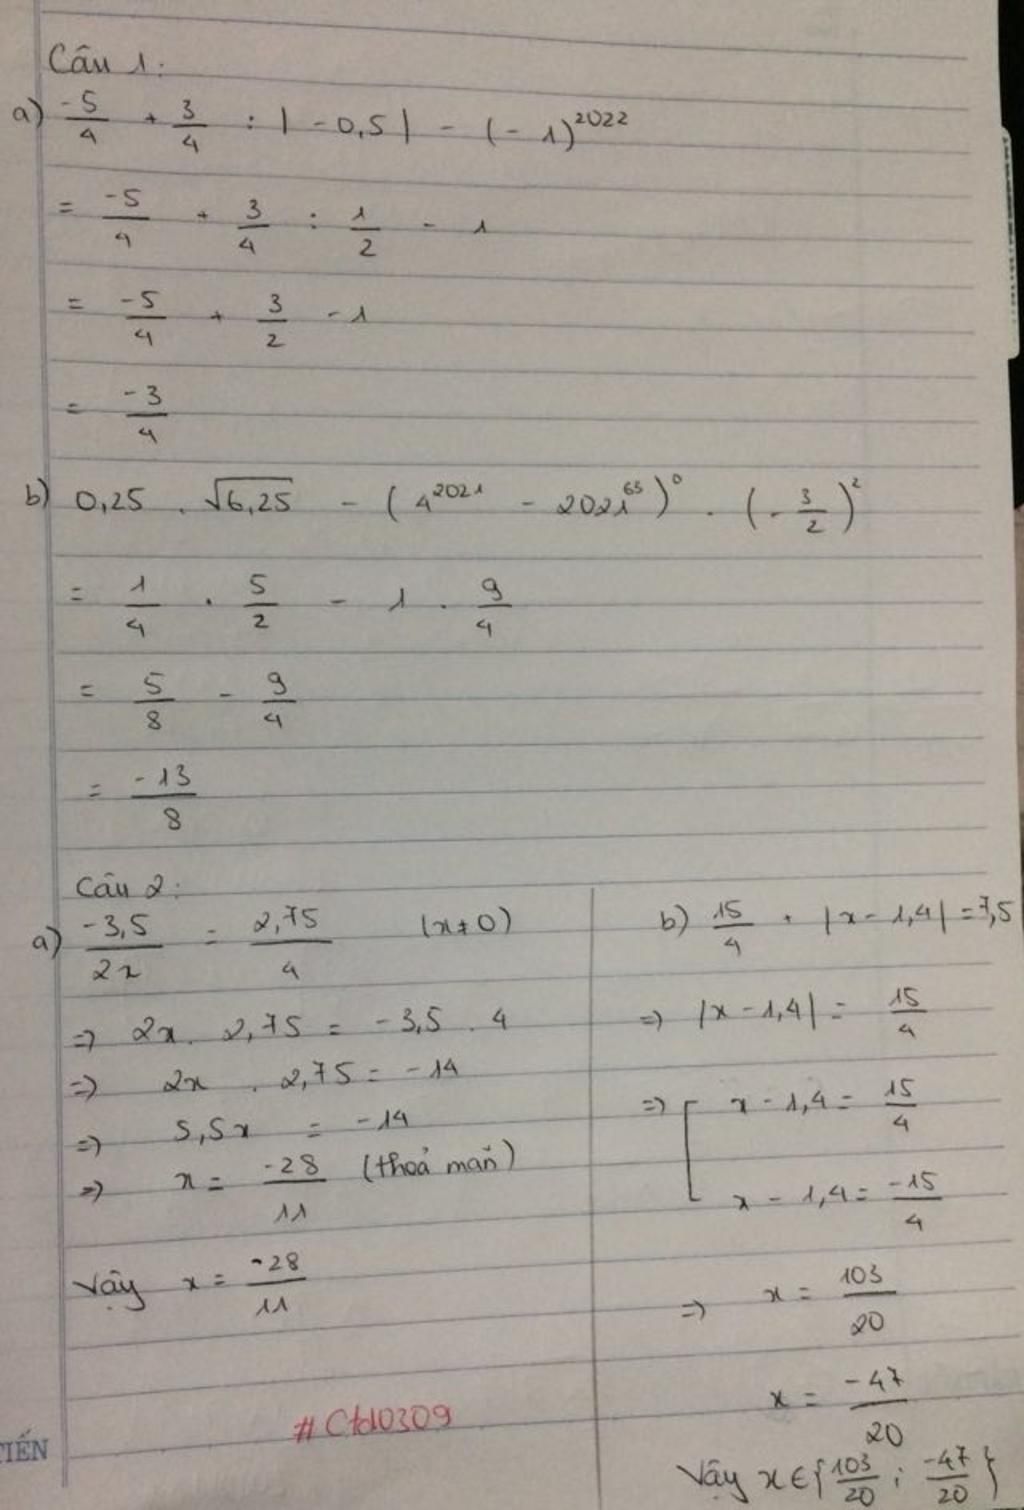 Câu 1:
a) -5/4 + 3/4 : |-0,5| - (-1)^2022
= -5/4 + 3/4 : 1/2 - 1
= -5/4 + 3/2 - 1
= -3/4
b) 0,25 . √6,25 - (4^2021 - 2021^65)^0 . (-3/2)^2
= 1/4 . 5/2 - 1 . 9/4
= 5/8 - 9/4
= -13/8
Câu 2:
a) -3,5/2x = 2,75/4 (x≠0)
=> 2x . 2,75 = -3,5 . 4
=> 2x . 2,75 = -14
=> 5,5x = -14
=> x = -28/11 (thoả mãn)
Vậy x = -28/11
b) 15/4 + |x - 1,4| = 7,5
=> |x - 1,4| = 15/4
=> [ x - 1,4 = 15/4
x - 1,4 = -15/4
=> x = 103/20
x = -47/20
Vậy x ∈ {103/20 ; -47/20}
#Ctd0309
TIẾN